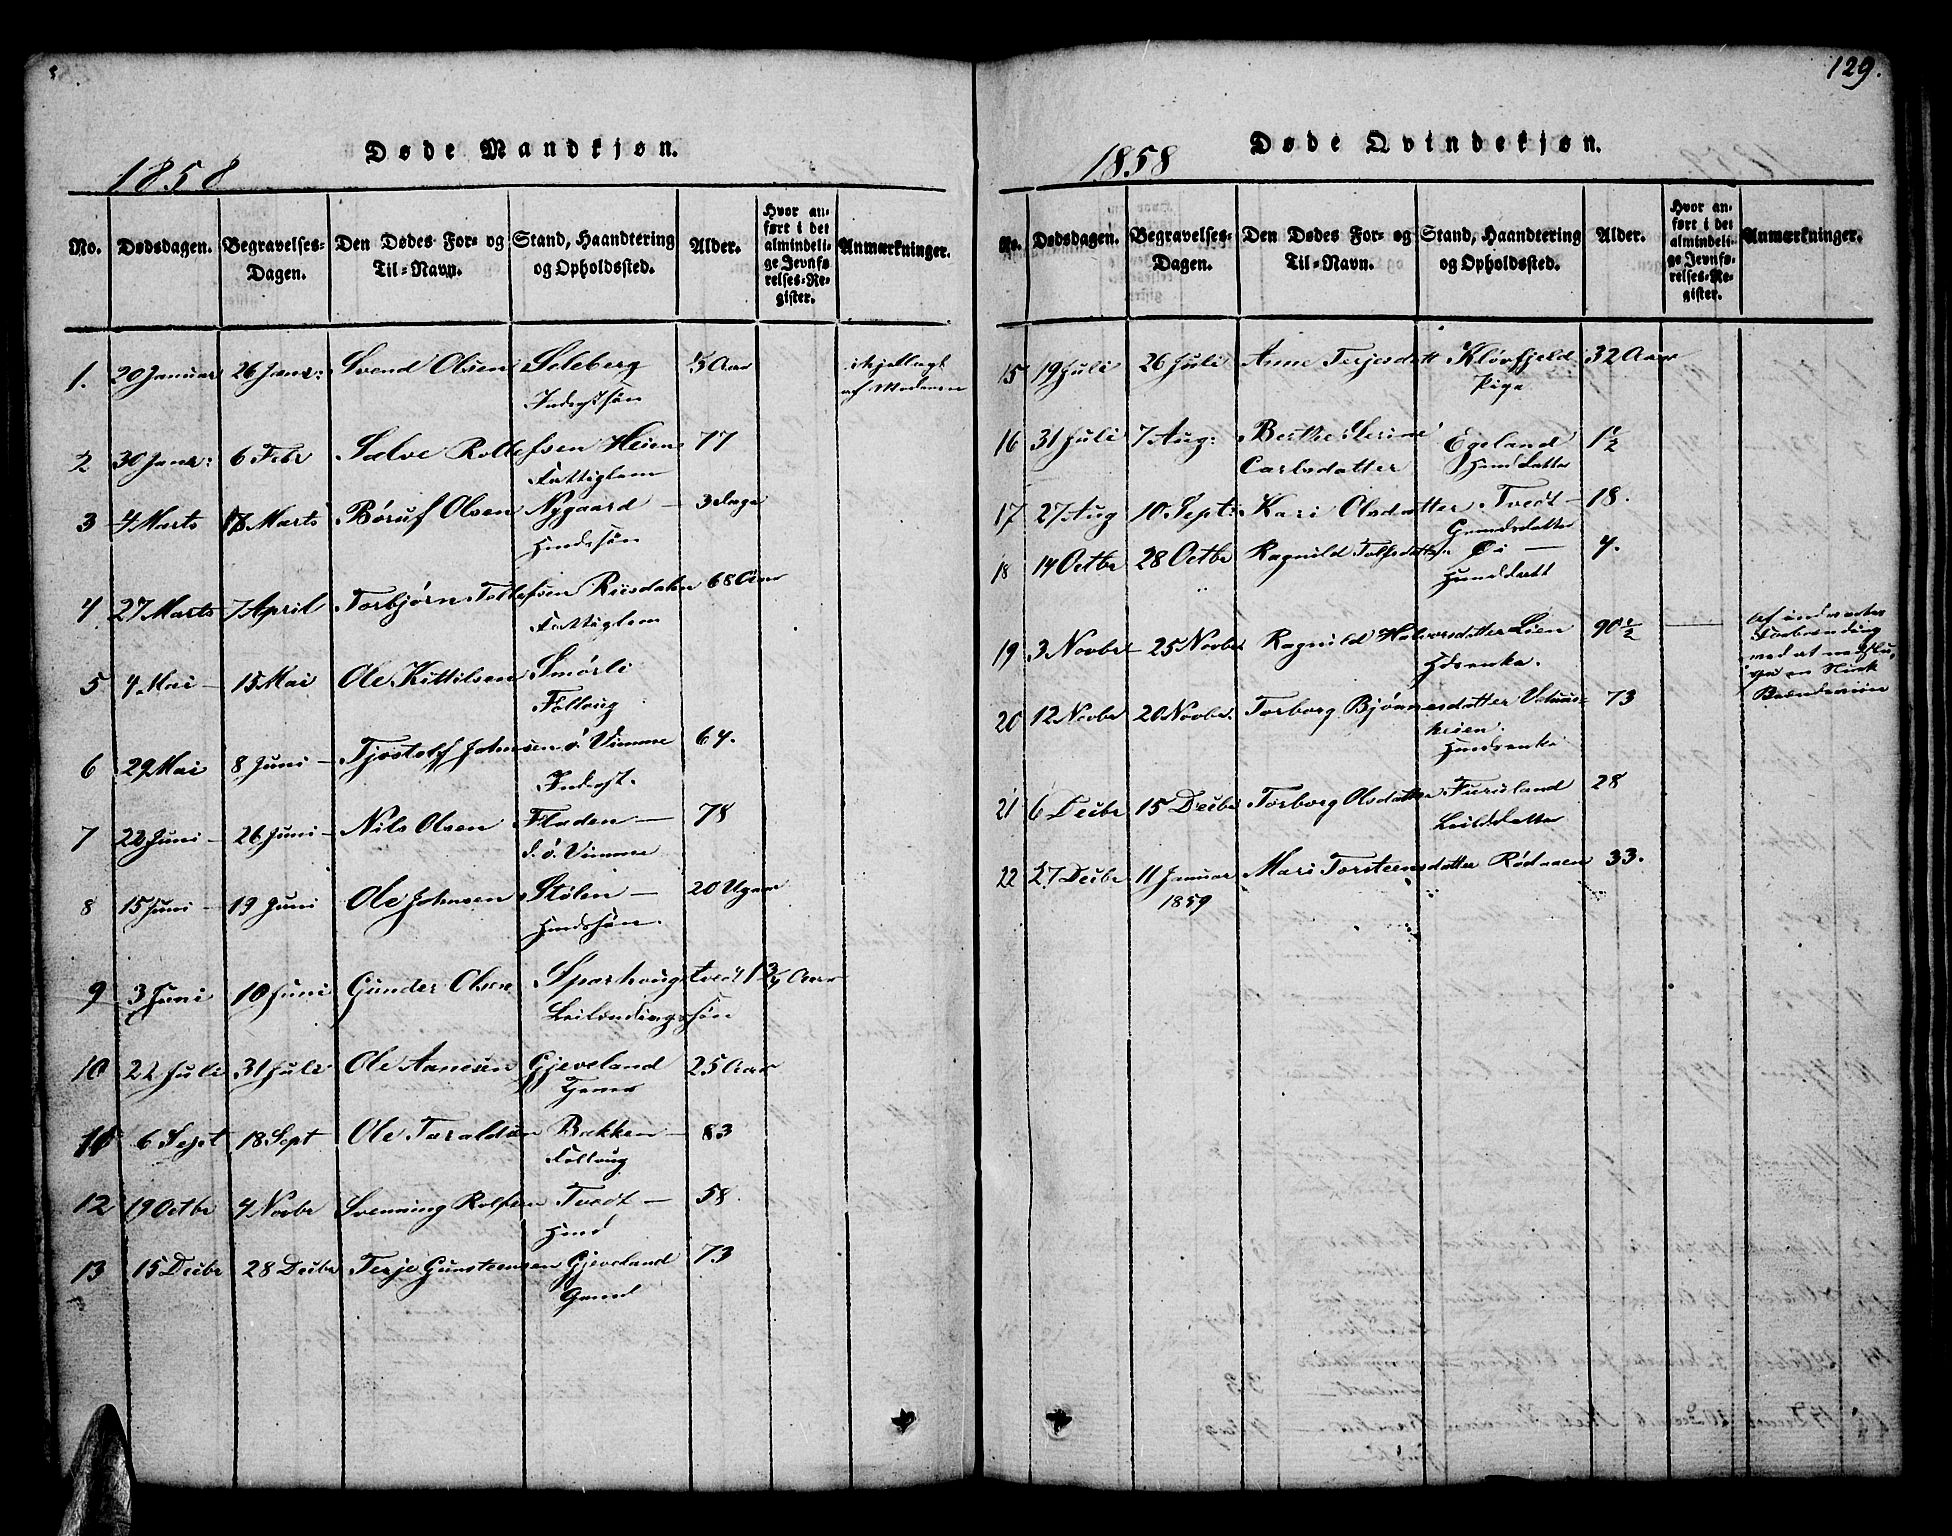 129.
Døde Mandkjøn.
1858
No. Dødsdagen. Begravelses-Dagen. Den Dødes For- og Til-Navn. Stand, Haandtering og Opholdssted. Alder. Hvor anført i det almindelige Jevnførelses-Register. Anmærkninger.
1. 20 Januar 26 Janr: Svend Olsen Soleberg ihjellagt
af Moderen
2 30 Janr: 6 Febr Salve Rollefsen Heien 77
Fattiglem
3 4 Marts Marts Børuf Olsen Nygaard — 3 Dage
Huusmsøn
4 27 Marts 7 April Torbjørn Tellefsen Riisdalen 68 Aar
Fattiglem
5 4 Mai — 15 Mai Ole Kittilsen Smørli
Føllaug
6 29 Mai 8 Juni — Tjøstolf Johnsen ø. Vimme 64.
Inderst.
7 22 Juni — 26 Juni — Nils Olsen Fladen — 78
ø. Vimme
8 15 Juni — 19 Juni Ole Johnsen Stølen — 20 Uger
9 3 Juni 10 Juni Gunder Olsen Sparhougstvedt 1 3/4 Aar
Leilændingssøn
10 22 Juli 31 Juli Ole Aanesen Gjeveland 25 Aar
11 6 Sept 18 Sept Ole Taraldsen Bakken — 83
Føllaug
12 19 Octbr 4 Novbr Svenning Rolfsen Tvedt — 58
13 15 Decbr 28 Decbr Terje Gunsteensen Gjeveland 73
Gmd
Døde Qvindekjøn.
1858
No. Dødsdagen. Begravelses-Dagen. Den Dødes For- og Til-Navn. Stand, Haandtering og Opholdssted. Alder. Hvor anført i det almindelige Jevnførelses-Register. Anmærkninger.
15 19 Juli 26 Juli Anne Terjesdatt Kløvfjeld 32 Aar
Pige
16 31 Juli 7 Aug: Berthe Serine Egeland 1½
Carlsdatter
17 27 Aug 10 Sept: Kari Olsdatter Tvedt — 18.
Gmdsdatter
18 14 Octbr 28 Octbr Ragnild Tolfsdatter — 4.
19 3 Novbr — 25 Novbr Ragnild Halvorsdatter Lien 90½
Forbrænding
Brændeviin
20 12 Novbr 20 Novbr. Torborg Bjønnesdatter 73
heien.
21 6 Decbr 15 Decbr Torborg Olsdatter Furuland 28
22 27 Decbr 11 Januar Mari Torsteensdatter Rødaaen 33.
1859